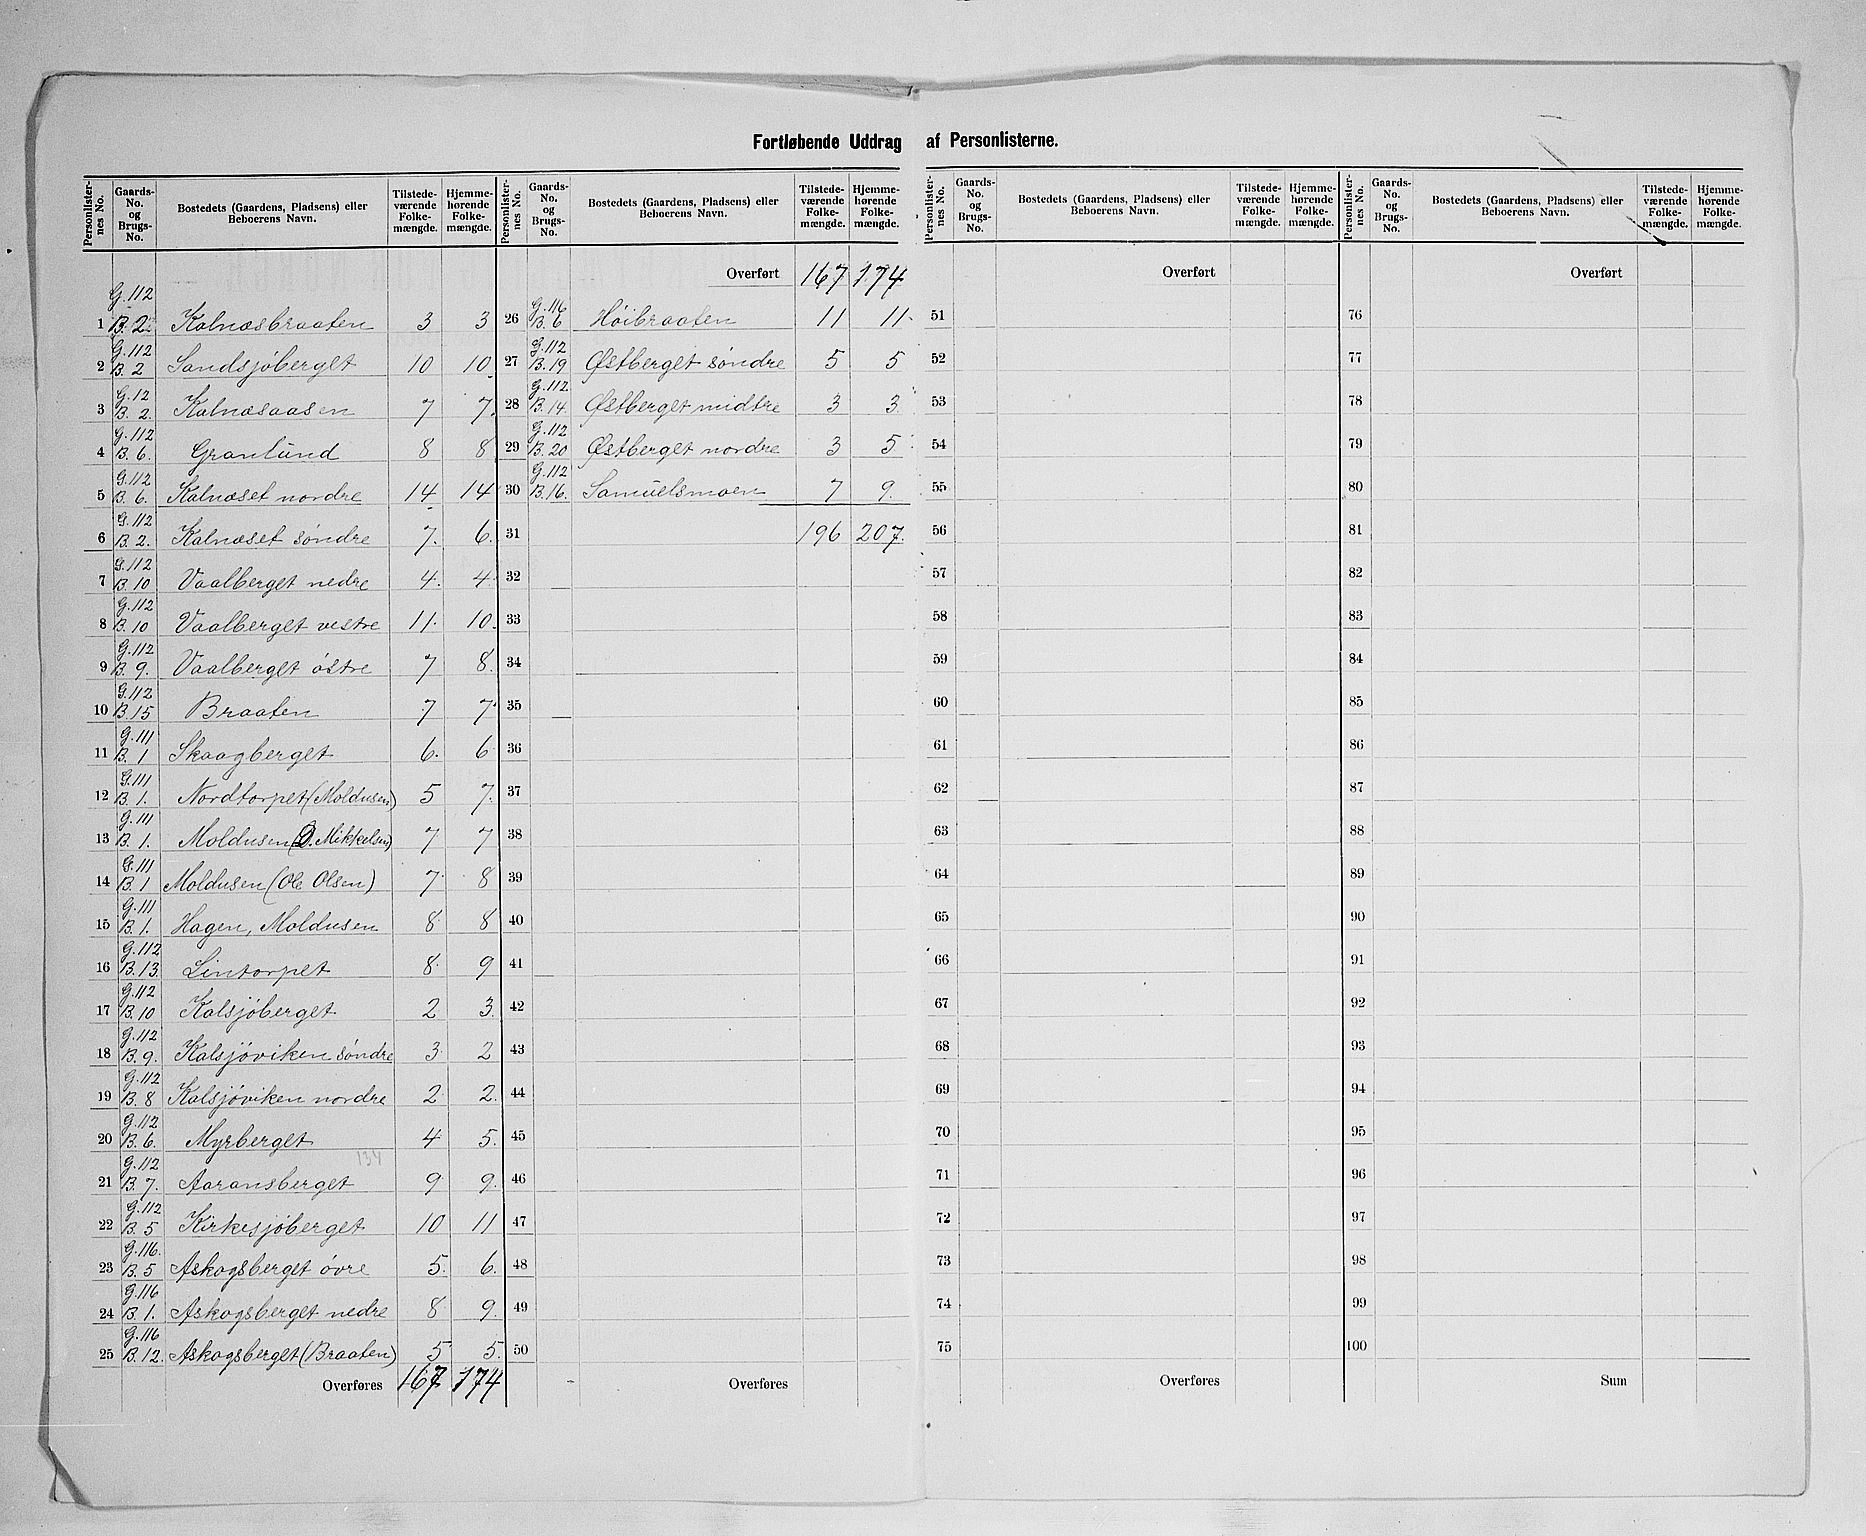 Fortløbende Uddrag af Personlisterne.
Personlister-nes No. | Gaards-No. og Brugs-No. | Bostedets (Gaardens, Pladsens) eller Beboerens Navn. | Tilstede-værende Folke-mængde. | Hjemme-hørende Folke-mængde.
1 | G. 112 B. 2 | Kalnæsbraaten | 3 | 3
2 | G. 112 B. 2 | Sandsjøberget | 10 | 10
3 | G. 12 B. 2. | Kalnæsaasen | 7 | 7.
4 | G. 112 B. 6. | Granlund | 8 | 8
5 | G. 112 B. 6. | Kalnæset nordre | 14 | 14
6 | G. 112 B. 2. | Kalnæset søndre | 7. | 6.
7 | G. 112 B. 10 | Vaalberget nedre | 4. | 4.
8 | G. 112 B. 10 | Vaalberget vestre | 11. | 10.
9 | G. 112 B. 9. | Vaalberget østre | 7 | 8.
10 | G. 112 B. 15 | Braaten | 7 | 7
11 | G. 111 B. 1 | Skaagberget | 6. | 6
12 | G. 111 B. 1. | Nordtorpet (Moldusen) | 5 | 7.
13 | G. 111 B. 1. | Moldusen (O. Mikkelsen) | 7 | 7
14 | G. 111 B. 1 | Moldusen (Ole Olsen) | 7 | 8
15 | G. 111 B. 1. | Hagen, Moldusen | 8 | 8
16 | G. 112 B. 13. | Lintorpet | 8 | 9
17 | G. 112 B. 10 | Kalsjøberget | 2 | 3.
18 | G. 112 B. 9. | Kalsjøviken søndre | 3 | 2
19 | G. 112 B. 8 | Kalsjøviken nordre | 2 | 2.
20 | G. 112 B. 6. | Myrberget | 4 | 5.
134
21 | G. 112 B. 7. | Aaransberget | 9 | 9.
22 | G. 112 B. 5 | Kirkesjøberget | 10 | 11
23 | G. 116. B. 5 | Askogsberget øvre | 5. | 6.
24 | G. 116 B. 1. | Askogsberget nedre | 8 | 9.
25 | G. 116 B. 12. | Askogsberget (Braaten) | 5 | 5.
Overføres | 167 | 174
Personlister-nes No. | Gaards-No. og Brugs-No. | Bostedets (Gaardens, Pladsens) eller Beboerens Navn. | Tilstede-værende Folke-mængde. | Hjemme-hørende Folke-mængde.
Overført | 167 | 174
26 | G. 116 B. 6 | Høibraaten | 11 | 11.
27 | G. 112 B. 19 | Østberget søndre | 5 | 5
28 | G. 112 B. 14. | Østberget midtre | 3 | 3
29 | G. 112 B. 20 | Østberget nordre | 3 | 5
30 | G. 112 B. 16. | Samuelsmoen | 7 | 9.
31 | 196 | 207.
32
33
34
35
36
37
38
39
40
41
42
43
44
45
46
47
48
49
50
Overføres
Personlister-nes No. | Gaards-No. og Brugs-No. | Bostedets (Gaardens, Pladsens) eller Beboerens Navn. | Tilstede-værende Folke-mængde. | Hjemme-hørende Folke-mængde.
Overført
51
52
53
54
55
56
57
58
59
60
61
62
63
64
65
66
67
68
69
70
71
72
73
74
75
Overføres
Personlister-nes No. | Gaards-No. og Brugs-No. | Bostedets (Gaardens, Pladsens) eller Beboerens Navn. | Tilstede-værende Folke-mængde. | Hjemme-hørende Folke-mængde.
Overført
76
77
78
79
80
81
82
83
84
85
86
87
88
89
90
91
92
93
94
95
96
97
98
99
100
Sum